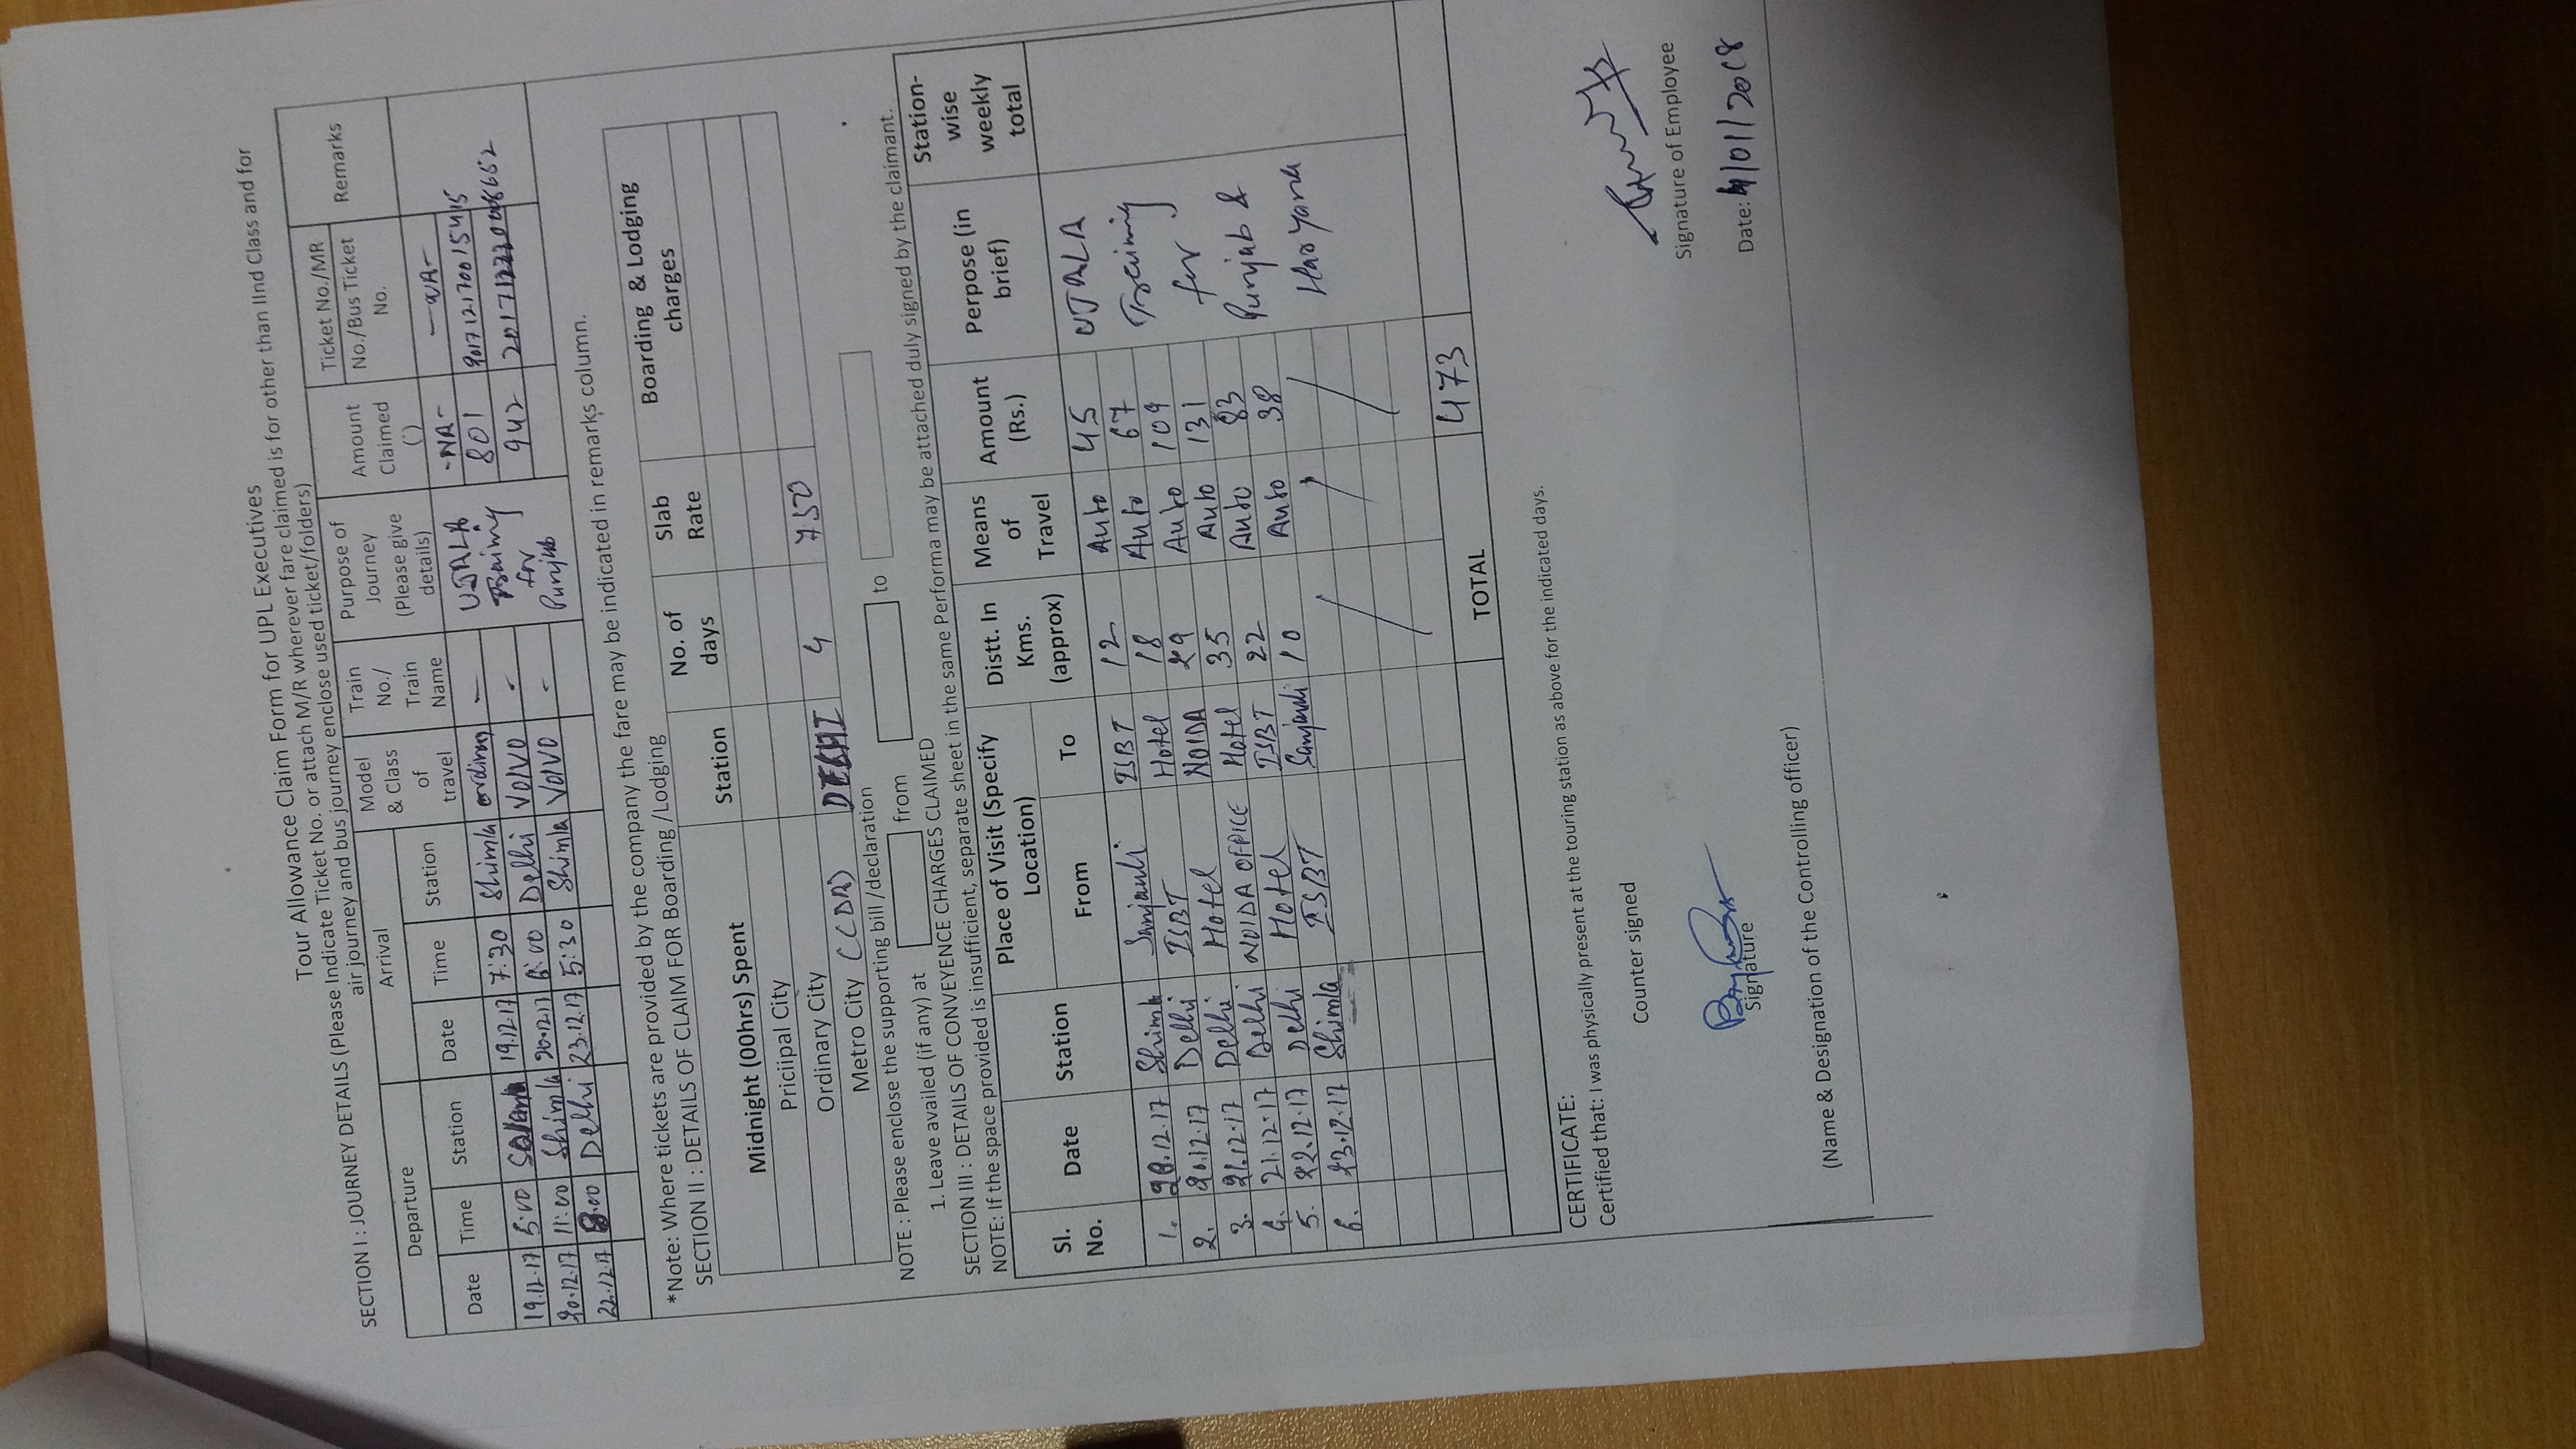 Tour Allowance Claim Form for UPL Executives
SECTION I : JOURNEY DETAILS (Please Indicate Ticket No. or attach M/R wherever fare claimed is for other than IInd Class and for
air journey and bus journey enclose used ticket/folders)
Departure Arrival Model & Class of travel Train No./ Train Name Purpose of Journey (Please give details) Amount Claimed (`) Ticket No./MR No./Bus Ticket No. Remarks
Date Time Station Date Time Station
19.12.17 5:00 19.12.17 7:30 Shimla ordinary — UJALA -NA- -NA-
20.12.17 11:00 Shimla 20.12.17 6:00 Delhi VOLVO - Training 801
22.12.17 8:00 Delhi 23.12.17 5:30 Shimla VOLVO - for 942
Punjab
*Note: Where tickets are provided by the company the fare may be indicated in remarks column.
SECTION II : DETAILS OF CLAIM FOR Boarding /Lodging
Midnight (00hrs) Spent Station No. of days Slab Rate Boarding & Lodging charges
Priciipal City
Ordinary City
Metro City (CDA) DELHI 4 750
NOTE : Please enclose the supporting bill /declaration
1. Leave availed (if any) at from to
SECTION III : DETAILS OF CONVEYENCE CHARGES CLAIMED
NOTE: If the space provided is insufficient, separate sheet in the same Performa may be attached duly signed by the claimant.
Sl. No. Date Station Place of Visit (Specify Location) Distt. In Kms. (approx) Means of Travel Amount (Rs.) Perpose (in brief) Station-wise weekly total
From To
1. 20.12.17 Shimla Sanjauli ISBT 12 Auto 45 UJALA
2. 20.12.17 Delhi ISBT Hotel 18 Auto 67 Training
3. 21.12.17 Delhi Hotel NOIDA 29 Auto 109 for
4. 21.12.17 Delhi NOIDA OFFICE Hotel 35 Auto 131 Punjab &
5. 22.12.17 Delhi Hotel ISBT 22 Auto 83 Haryana
6. 23.12.17 Shimla ISBT Sanjauli 10 Auto 38
TOTAL 473
CERTIFICATE:
Certified that: I was physically present at the touring station as above for the indicated days.
Counter signed
Signature of Employee
Signature
Date: 4/01/2018
(Name & Designation of the Controlling officer)